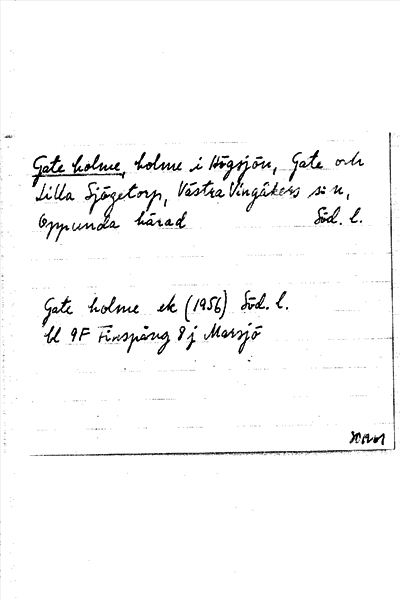 Gate holme, holme i Högsjön, Gate och
Lilla Sjögetorp, Västra Vingåkers sn,
Oppunda härad Söd. l.
Gate holme ek (1956) Söd. l.
bl 9F Finspång 8j Marsjö